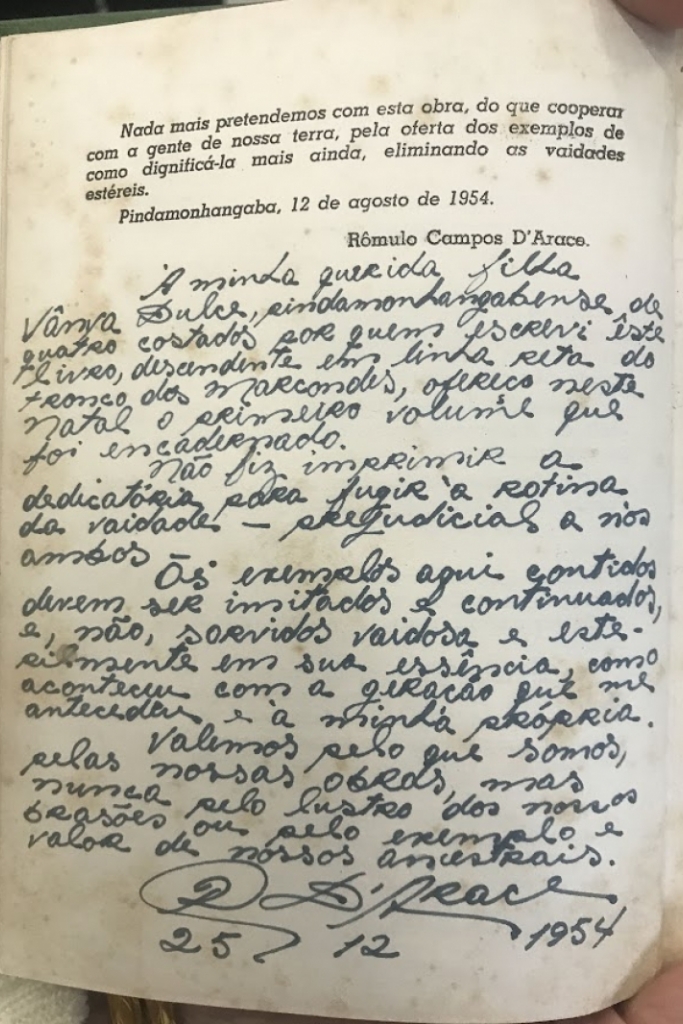 Nada mais pretendemos com esta obra, do que cooperar
com a gente de nossa terra, pela oferta dos exemplos de
como dignificá-la mais ainda, eliminando as vaidades
estéreis.
Pindamonhangaba, 12 de agosto de 1954.
Rômulo Campos D'Arace.
A minha querida filha
Vânya Dulce, pindamonhangabense de
quatro costados por quem escrevi êste
livro, descendente em linha reta do
tronco dos Marcondes, ofereço neste
Natal o primeiro volume que
foi encadernado.
Não fiz imprimir a
dedicatória para fugir à rotina
da vaidade — prejudicial a nós
ambos
Os exemplos aqui contidos
devem ser imitados e continuados,
e, não, sorvidos vaidosa e este-
rilmente em sua essência, como
aconteceu com a geração que me
antecedeu e à minha própria.
Valemos pelo que somos,
pelas nossas obras, mas
nunca pelo lustro dos nossos
brasões ou pelo exemplo e
valor de nossos ancestrais.
R D'Arace
25 12 1954